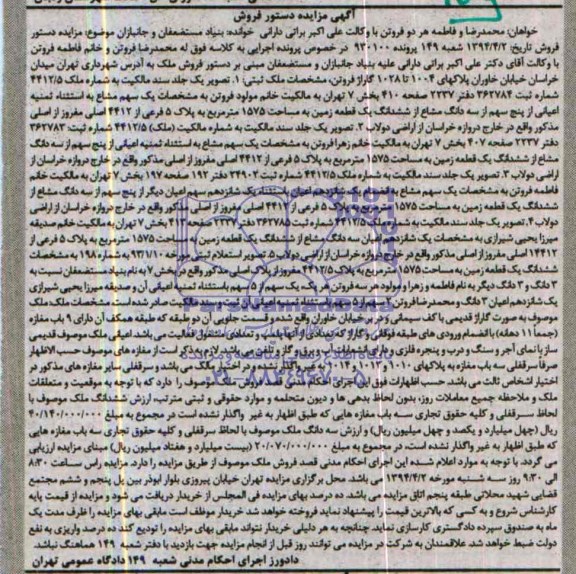 آگهی مزایده دستور فروش
خواهان: محمدرضا و فاطمه هر دو فروتن با وکالت علی اکبر براتی دارانی خوانده: بنیاد مستضعفان و جانبازان موضوع: مزایده دستور
فروش تاریخ: ۱۳۹۴/۴/۲ شعبه ۱۴۹ پرونده ۹۳۰۱۰۰ در خصوص پرونده اجرایی به کلاسه فوق له محمدرضا فروتن و خانم فاطمه فروتن
با وکالت آقای دکتر علی اکبر براتی دارانی علیه بنیاد جانبازان و مستضعفان مبنی بر دستور فروش ملک به آدرس شهرداری تهران میدان
خراسان خیابان خاوران پلاکهای ۱۰۰۴ تا ۱۰۲۸ گاراژ فروتن، مشخصات ملک ثبتی: ۱. تصویر یک جلد سند مالکیت به شماره ملک ۴۴۱۲/۵
شماره ثبت ۳۶۲۷۸۴ دفتر ۲۲۳۷ صفحه ۴۱۰ بخش ۷ تهران به مالکیت خانم مولود فروتن به مشخصات یک سهم مشاع به استثناء ثمنیه
اعیانی از پنج سهم از سه دانگ مشاع از ششدانگ یک قطعه زمین به مساحت ۱۵۷۵ مترمربع به پلاک ۵ فرعی از ۴۴۱۲ اصلی مفروز از اصلی
مذکور واقع در خارج دروازه خراسان از اراضی دولاب ۲. تصویر یک جلد سند مالکیت به شماره (ملک) ۴۴۱۲/۵ شماره ثبت: ۳۶۲۷۸۳
دفتر ۲۲۳۷ صفحه ۴۰۷ بخش ۷ تهران به مالکیت خانم زهرا فروتن به مشخصات یک سهم مشاع به استثناء ثمنیه اعیانی از پنج سهم از سه دانگ
مشاع از ششدانگ یک قطعه زمین به مساحت ۱۵۷۵ مترمربع به پلاک ۵ فرعی از ۴۴۱۲ اصلی مفروز از اصلی مذکور واقع در خارج دروازه خراسان از
اراضی دولاب ۳. تصویر یک جلد سند مالکیت به شماره ملک ۴۴۱۲/۵ شماره ثبت ۲۴۹۰۲ دفتر ۱۹۲ صفحه ۱۹۷ بخش ۷ تهران به مالکیت خانم
فاطمه فروتن به مشخصات یک سهم مشاع به استثناء یک شانزدهم سهم اعیان دیگر از پنج سهم از سه دانگ مشاع از
ششدانگ یک قطعه زمین به مساحت ۱۵۷۵ مترمربع به پلاک ۵ فرعی از ۴۴۱۲ اصلی مفروز از اصلی مذکور واقع در خارج دروازه خراسان از اراضی
دولاب ۴. تصویر یک جلد سند مالکیت به شماره ملک ۴۴۱۲/۵ شماره ثبت ۳۶۲۷۸۵ دفتر ۲۲۳۷ صفحه ۴۱۳ بخش ۷ تهران به مالکیت خانم صدیقه
میرزا یحیی شیرازی به مشخصات یک شانزدهم اعیان سه دانگ مشاع از ششدانگ یک قطعه زمین به مساحت ۱۵۷۵ مترمربع به پلاک ۵ فرعی از
۴۴۱۲ اصلی مفروز از اصلی مذکور واقع در خارج دروازه خراسان از اراضی دولاب ۵. تصویر استعلام ثبتی مورخه ۹۳/۱/۱۰ به شماره ۱۹۸۰ به مشخصات
ششدانگ یک قطعه زمین به مساحت ۱۵۷۵ مترمربع به پلاک ۴۴۱۲/۵ مفروز از پلاک اصلی مذکور واقع در بخش ۷ به نام بنیاد مستضعفان نسبت به
۳ دانگ و ۳ دانگ دیگر به نام فاطمه و زهرا و مولود هر سه فروتن هر یک، یک سهم از ۵ سهم باستثناء ثمنیه اعیانی آن و صدیقه میرزا یحیی شیرازی
یک شانزدهم اعیان ۳ دانگ و محمدرضا فروتن ۲ سهم از ۵ سهم باستثناء ثمنیه اعیانی آن ثبت و سند مالکیت صادر شده است. مشخصات ملک
موصوف به صورت گاراژ قدیمی با کف سیمانی و در بر خیابان خاوران واقع شده و قسمت جلویی آن دو طبقه که طبقه همکف آن دارای ۹ باب مغازه
(جمعا ۱۱ دهانه) باانضمام ورودی های طبقه فوقانی و گاراژ که تعدادی از آنها پلمپ و تعدادی مشغول فعالیت می باشد. اصل ملک موصوف قدیمی
ساز با نمای آجر و سنگ و درب و پنجره فلزی و دارای انشعابات آب و برق و گاز و تلفن می باشد. لازم به ذکر است از مغازه های موصوف حسب الاظهار
صرفاً سرقفلی سه باب مغازه به پلاکهای ۱۰۱۰ و ۱۰۱۲ و ۱۰۱۴ به غیر واگذار نشده و در اختیار مالک می باشد و سرقفلی سایر مغازه های مذکور در
اختیار اشخاص ثالث می باشد. حسب اظهارات فوق این اجرای احکام مدنی قصد فروش ملک موصوف را دارد که با توجه به موقعیت و متعلقات
ملک و ملاحظه جمیع معاملات روز، بدون لحاظ بدهی ها و دیون متحلمه و موارد حقوقی و ثبتی مترتب، ارزش ششدانگ ملک موصوف با
لحاظ سرقفلی و کلیه حقوق تجاری سه باب مغازه هایی که طبق اظهار به غیر واگذار نشده است در مجموع به مبلغ ۴۰/۱۴۰/۰۰۰/۰۰۰
ریال (چهل میلیارد و یکصد و چهل میلیون ریال) و ارزش سه دانگ ملک موصوف با لحاظ سرقفلی و کلیه حقوق تجاری سه باب مغازه هایی
که طبق اظهار به غیر واگذار نشده است، در مجموع به مبلغ ۲۰/۰۷۰/۰۰۰/۰۰۰ (بیست میلیارد و هفتاد میلیون ریال) مبنای مزایده ارزیابی
می گردد. با توجه به موارد اعلام شده این اجرای احکام مدنی قصد فروش ملک موصوف از طریق مزایده را دارد. مزایده راس ساعت ۸:۳۰
الی ۹:۳۰ روز سه شنبه مورخه ۱۳۹۴/۴/۲ می باشد. محل برگزاری مزایده تهران خیابان پیروزی بلوار ابوذر بین پل پنجم و ششم مجتمع
قضایی شهید محلاتی طبقه پنجم اتاق مزایده می باشد. ده درصد بهای مزایده فی المجلس از خریدار دریافت می شود. مزایده از قیمت پایه
کارشناس شروع و به کسی که بالاترین قیمت را پیشنهاد نماید فروخته خواهد شد خریدار موظف است مابقی بهای مزایده را ظرف مدت یک
ماه به صندوق سپرده دادگستری کارسازی نماید. چنانچه به هر دلیلی خریدار نتواند مابقی بهای مزایده را تودیع کند ده درصد واریزی به نفع
دولت ضبط خواهد شد. علاقمندان به شرکت در مزایده می توانند روز قبل از انجام مزایده جهت بازدید با دفتر شعبه ۱۴۹ هماهنگ نباشد.
دادورز اجرای احکام مدنی شعبه ۱۴۹ دادگاه عمومی تهران